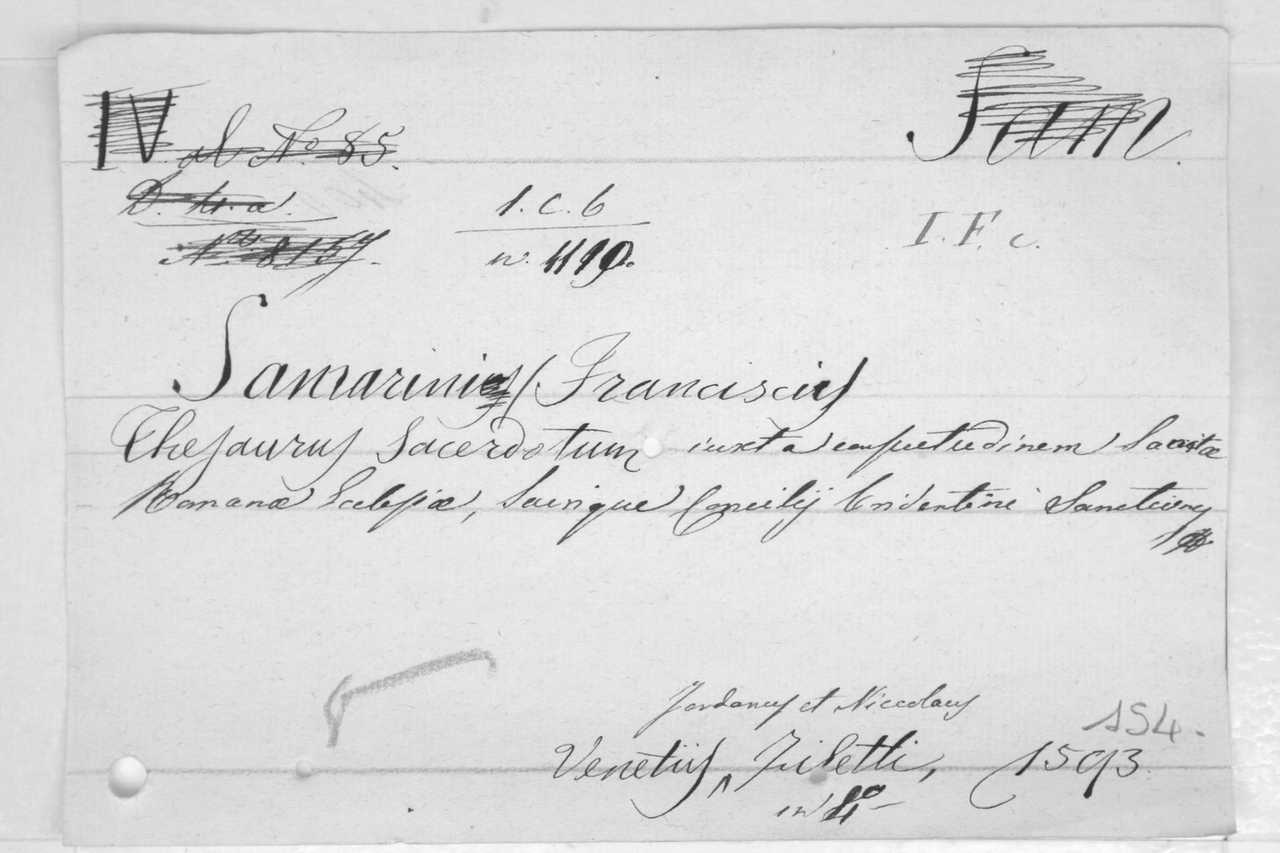 IV ab No 85. Sam.
D. 4. a. 1. c. 6
No 8157. n. 1190. I. F. c.
Samarinius (Franciscus
Thesaurus Sacerdotum iuxta consuetudinem Sanctæ
Romanæ Eclesiæ, Sacrique Concilij Tridentini Sanctiones
Jordanus et Niccolaus
154.
Venetiis, Ziletti, 1593.
in 4o